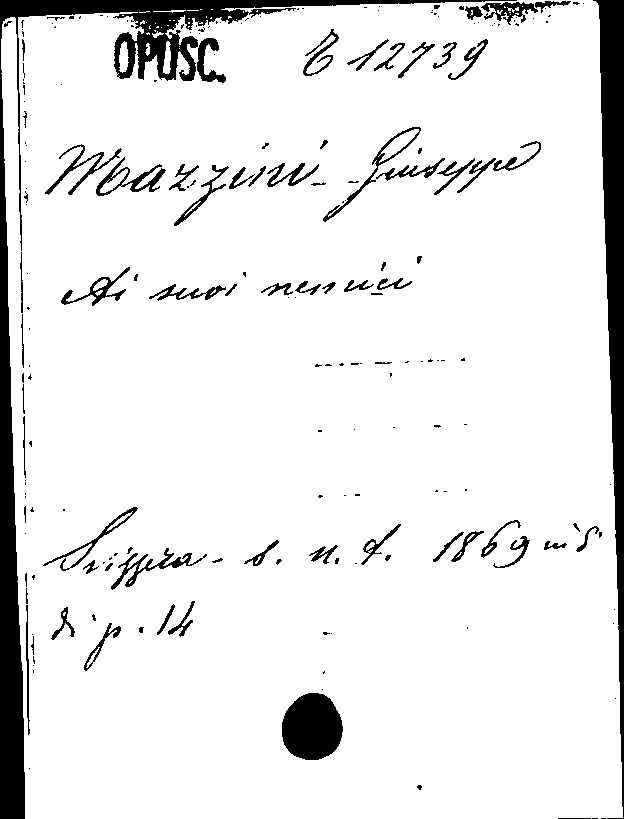 OPUSC. E 12739
Mazzini - Giuseppe
Ai suoi nemici
Svizzera - s. n. t. 1869 in 8°
di p. 14